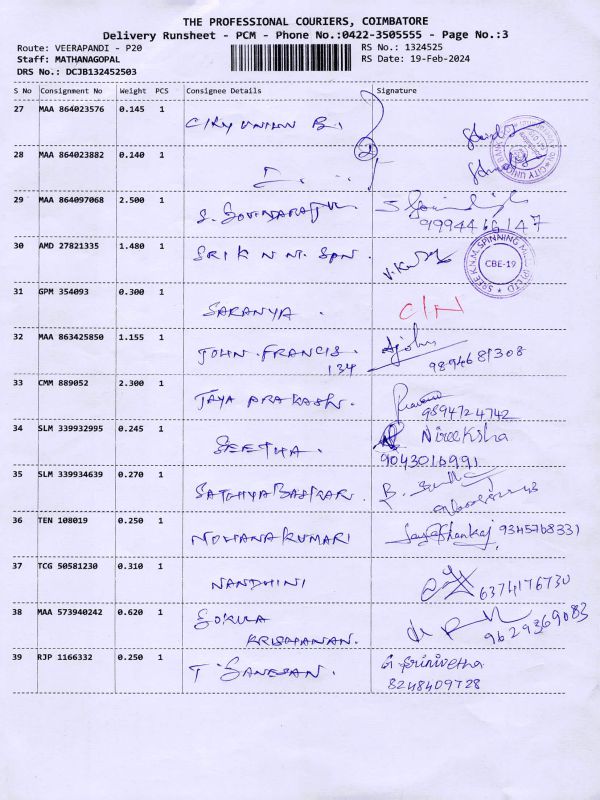 THE PROFESSIONAL COURIERS, COIMBATORE
Delivery Runsheet - PCM - Phone No.:0422-3505555 - Page No.:3
Route: VEERAPANDI - P20
RS No.: 1324525
Staff: MATHANAGOPAL
RS Date: 19-Feb-2024
DRS No.: DCJB132452503
S No Consignment No Weight PCS Consignee Details Signature
27 MAA 864023576 0.145 1
CITY UNION B.
CITY UNION BANK
28 MAA 864023882 0.140 1
29 MAA 864097068 2.500 1
S. GOVINDARAJUL
9994466147
30 AMD 27821335 1.480 1
SRI K N M. SPN.
SREE K.N.M. SPINNING MILL (P) LTD
CBE-19
31 GPM 354093 0.300 1
SARANYA.
C/N
32 MAA 863425850 1.155 1
JOHN FRANCIS.
134
9894681308
33 CMM 889052 2.300 1
JAYA PRAKASH.
9594724742
34 SLM 339932995 0.245 1
SEETHA.
Nireeksha
9043016991
35 SLM 339934639 0.270 1
SATHYABASKAR.
36 TEN 108019 0.250 1
MOHANAKUMARI
Jayashankaj 9345768331
37 TCG 50581230 0.310 1
NANDHINI
6374176730
38 MAA 573940242 0.620 1
GOKULA
KRISHANAN.
9629369083
39 RJP 1166332 0.250 1
T. GANESAN.
G. Srinivetha
8248409728